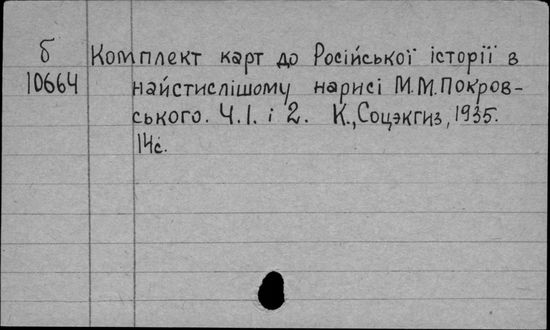 б
10664
Комплект карт до Російської історії в
найстислішому нарисі М.М.Покров-
ського. Ч.І. і 2. К., Соцэкгиз, 1935.
14с.